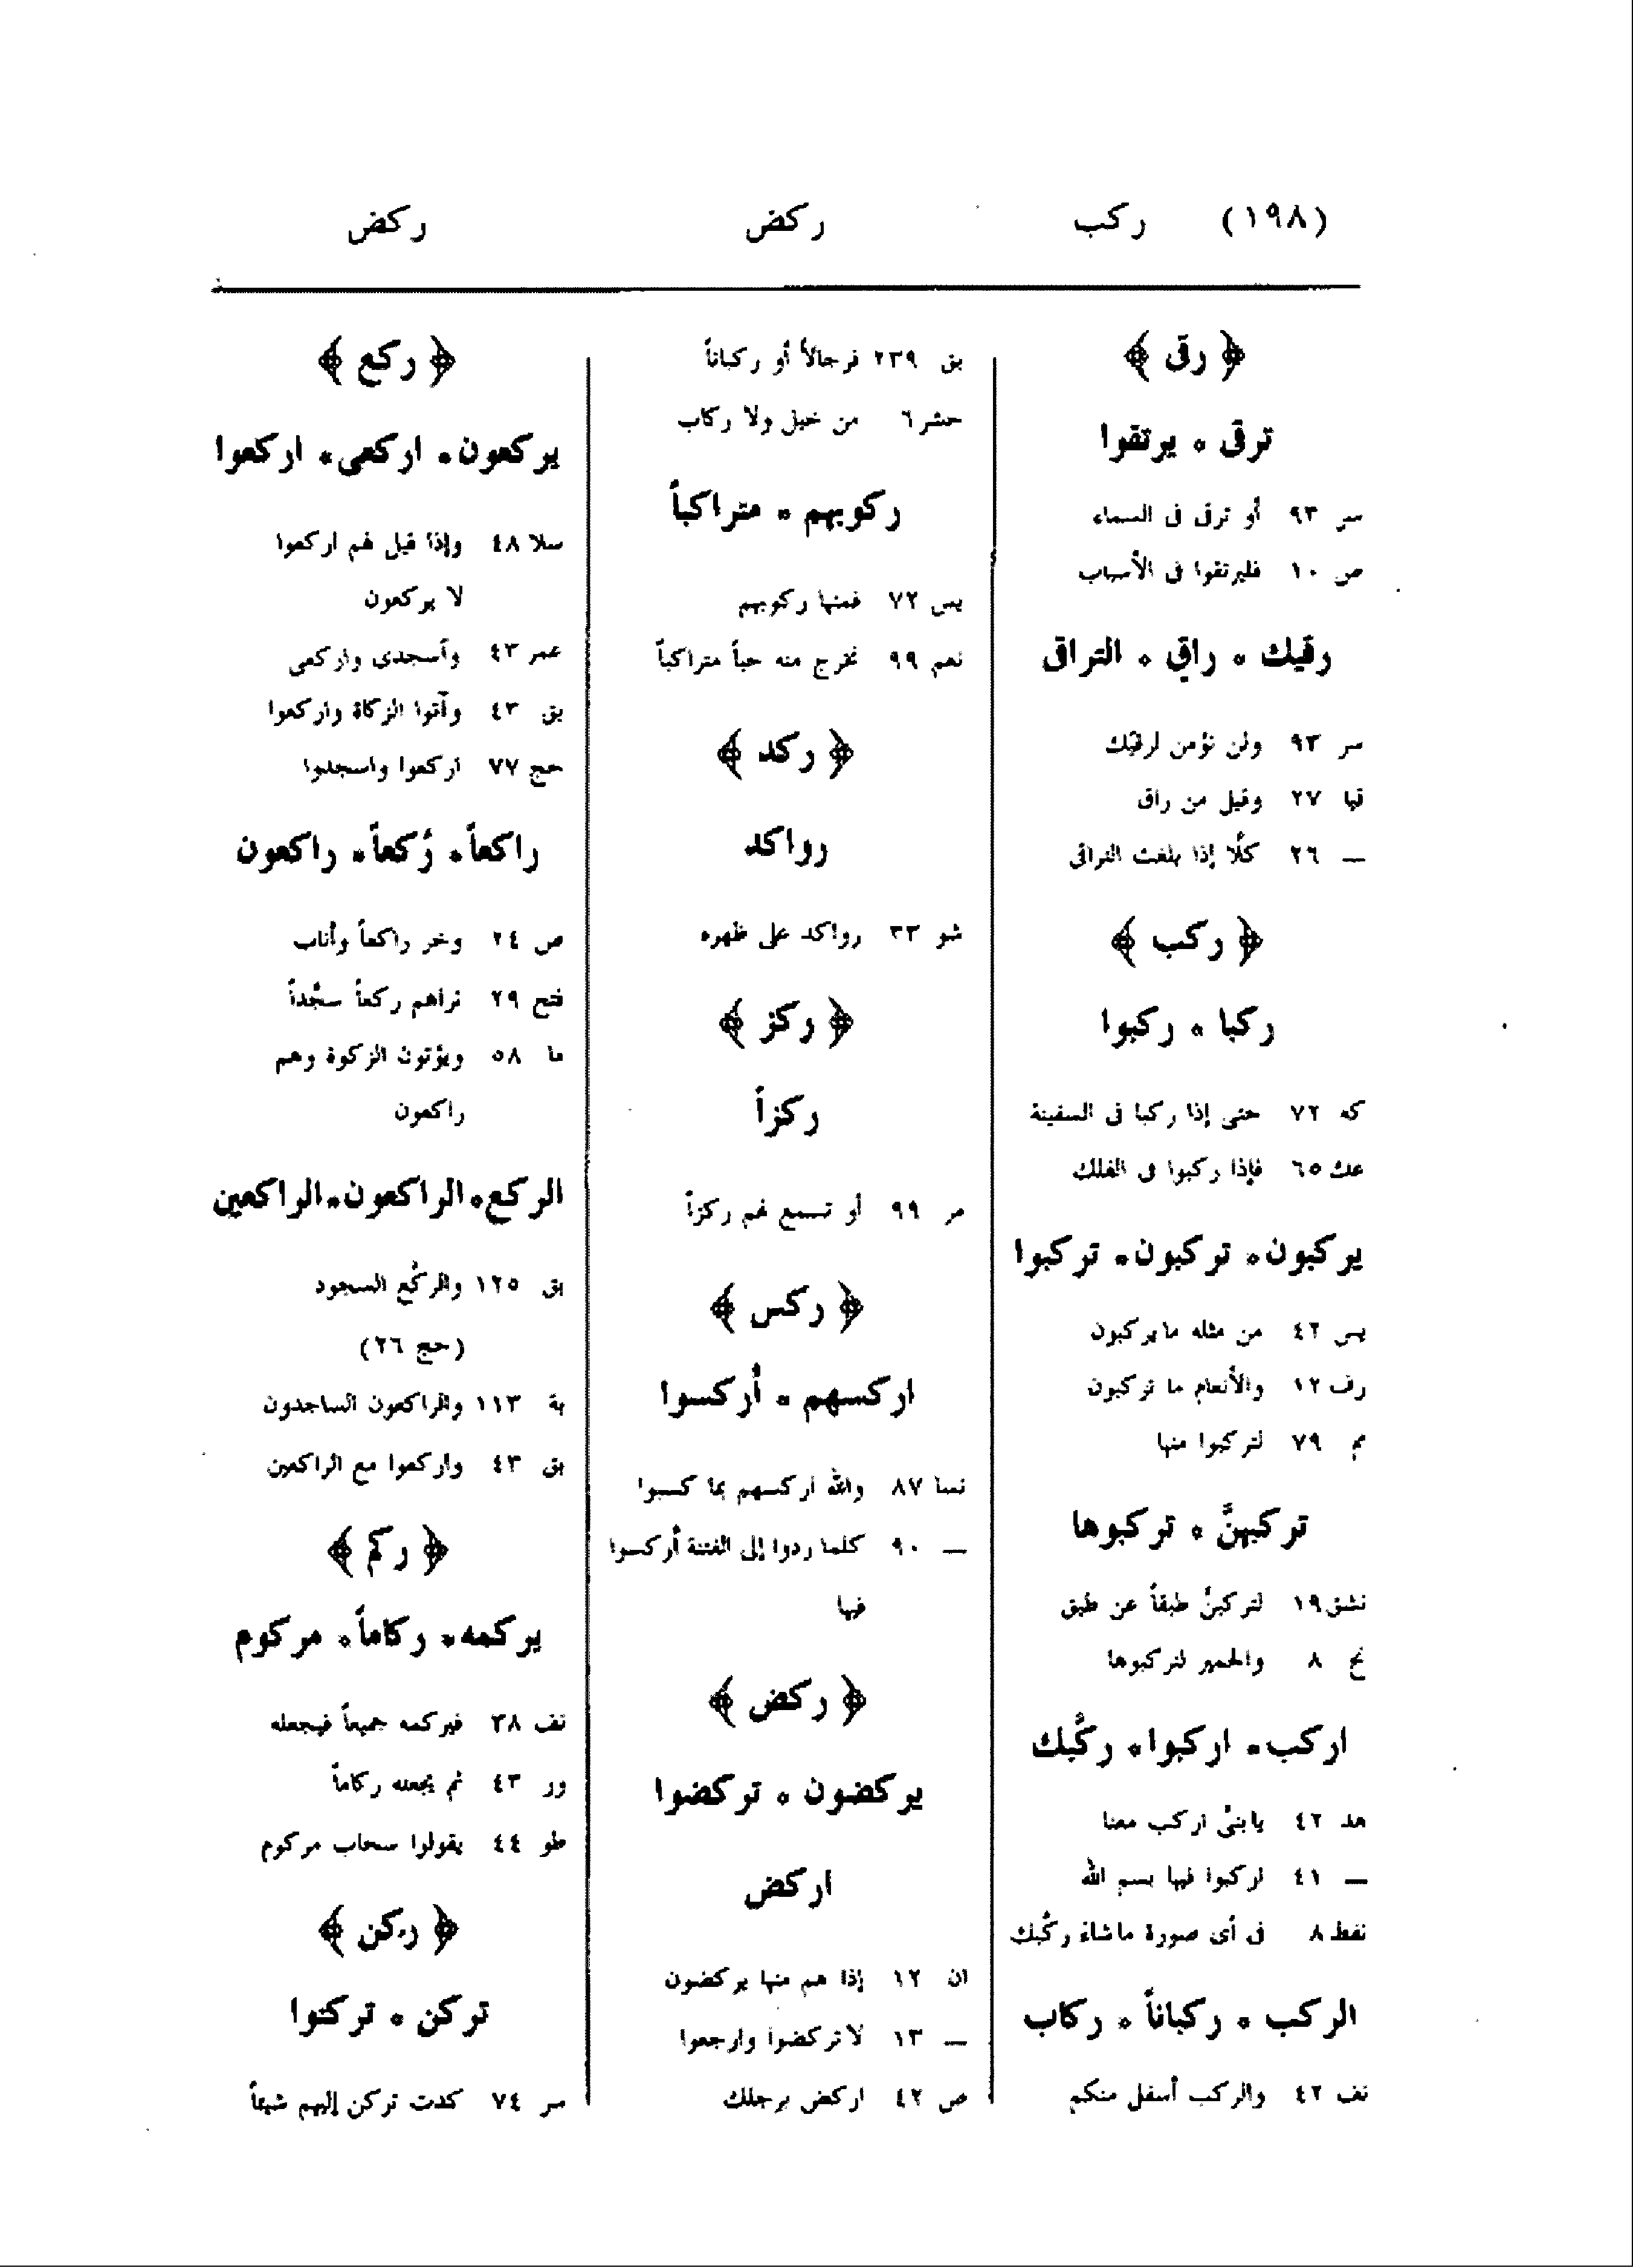 (١٩٨) ركب ركض ركض
﴿ رقى ﴾
ترقى * يرتقوا
سر ٩٣ أو ترقى فى السماء
ص ١٠ فليرتقوا فى الأسباب
رقيك * راق * التراقى
سر ٩٣ ولن نؤمن لرقيّك
قيا ٢٧ وقيل من راق
— ٢٦ كلّا إذا بلغت التراقى
﴿ ركب ﴾
ركبا * ركبوا
كه ٧٢ حتى إذا ركبا فى السفينة
عك ٦٥ فإذا ركبوا فى الفلك
يركبون * تركبون * تركبوا
يس ٤٢ من مثله ما يركبون
رف ١٢ والأنعام ما تركبون
مم ٧٩ لتركبوا منها
تركبهنَّ * تركبوها
نشق ١٩ لتركبنَّ طبقاً عن طبق
نح ٨ والحمير لتركبوها
اركب * اركبوا * ركَّبك
هد ٤٢ يا بنىَّ اركب معنا
— ٤١ اركبوا فيها بسم الله
نفط ٨ فى أى صورة ما شاء ركَّبك
الركب * ركباناً * ركاب
نف ٤٢ والركب أسفل منكم
بق ٢٣٩ فرجالاً أو ركباناً
حشر ٦ من خيل ولا ركاب
ركوبهم * متراكباً
يس ٧٢ فمنها ركوبهم
نعم ٩٩ نخرج منه حباً متراكباً
﴿ ركد ﴾
رواكد
شو ٣٣ رواكد على ظهره
﴿ ركز ﴾
ركزاً
مر ٩٩ أو تسمع لهم ركزاً
﴿ ركس ﴾
اركسهم * أُركسوا
نسا ٨٧ والله اركسهم بما كسبوا
— ٩٠ كلما ردوا إلى الفتنة أُركسوا
فيها
﴿ ركض ﴾
يركضون * تركضوا
اركض
ان ١٢ إذا هم منها يركضون
— ١٣ لا تركضوا وارجعوا
ص ٤٢ اركض برجلك
﴿ ركع ﴾
يركعون * اركعى * اركعوا
سلا ٤٨ وإذا قيل لهم اركعوا
لا يركعون
عمر ٤٣ وآسجدى واركعى
بق ٤٣ وآتوا الزكاة واركعوا
حج ٧٧ اركعوا واسجدوا
راكعاً * رُكعاً * راكعون
ص ٢٤ وخر راكعاً وأناب
فتح ٢٩ تراهم ركعاً سجَّداً
ما ٥٨ ويؤتون الزكوة وهم
راكعون
الركع * الراكعون * الراكعين
بق ١٢٥ والركَّع السجود
(حج ٢٦)
بة ١١٣ والراكعون الساجدون
بق ٤٣ واركعوا مع الراكعين
﴿ ركم ﴾
يركمه * ركاماً * مركوم
نف ٣٨ فيركمه جميعاً فيجعله
ور ٤٣ ثم يجعله ركاماً
طو ٤٤ يقولوا سحاب مركوم
﴿ ركن ﴾
تركن * تركنوا
سر ٧٤ كدت تركن إليهم شيئاً